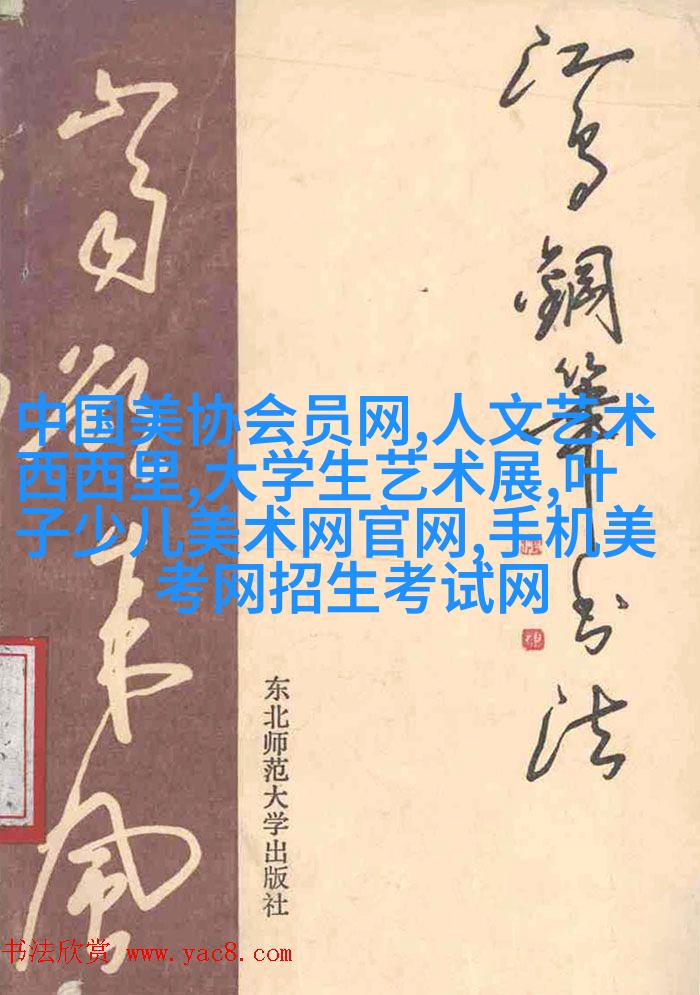 江鸟鋼筆书法
来风
中国美协会员网,人文艺术
西西里,大学生艺术展,叶
子少儿美术网官网,手机美
考网招生考试网
东北师范大学出版社
书法欣赏 www.yac8.com